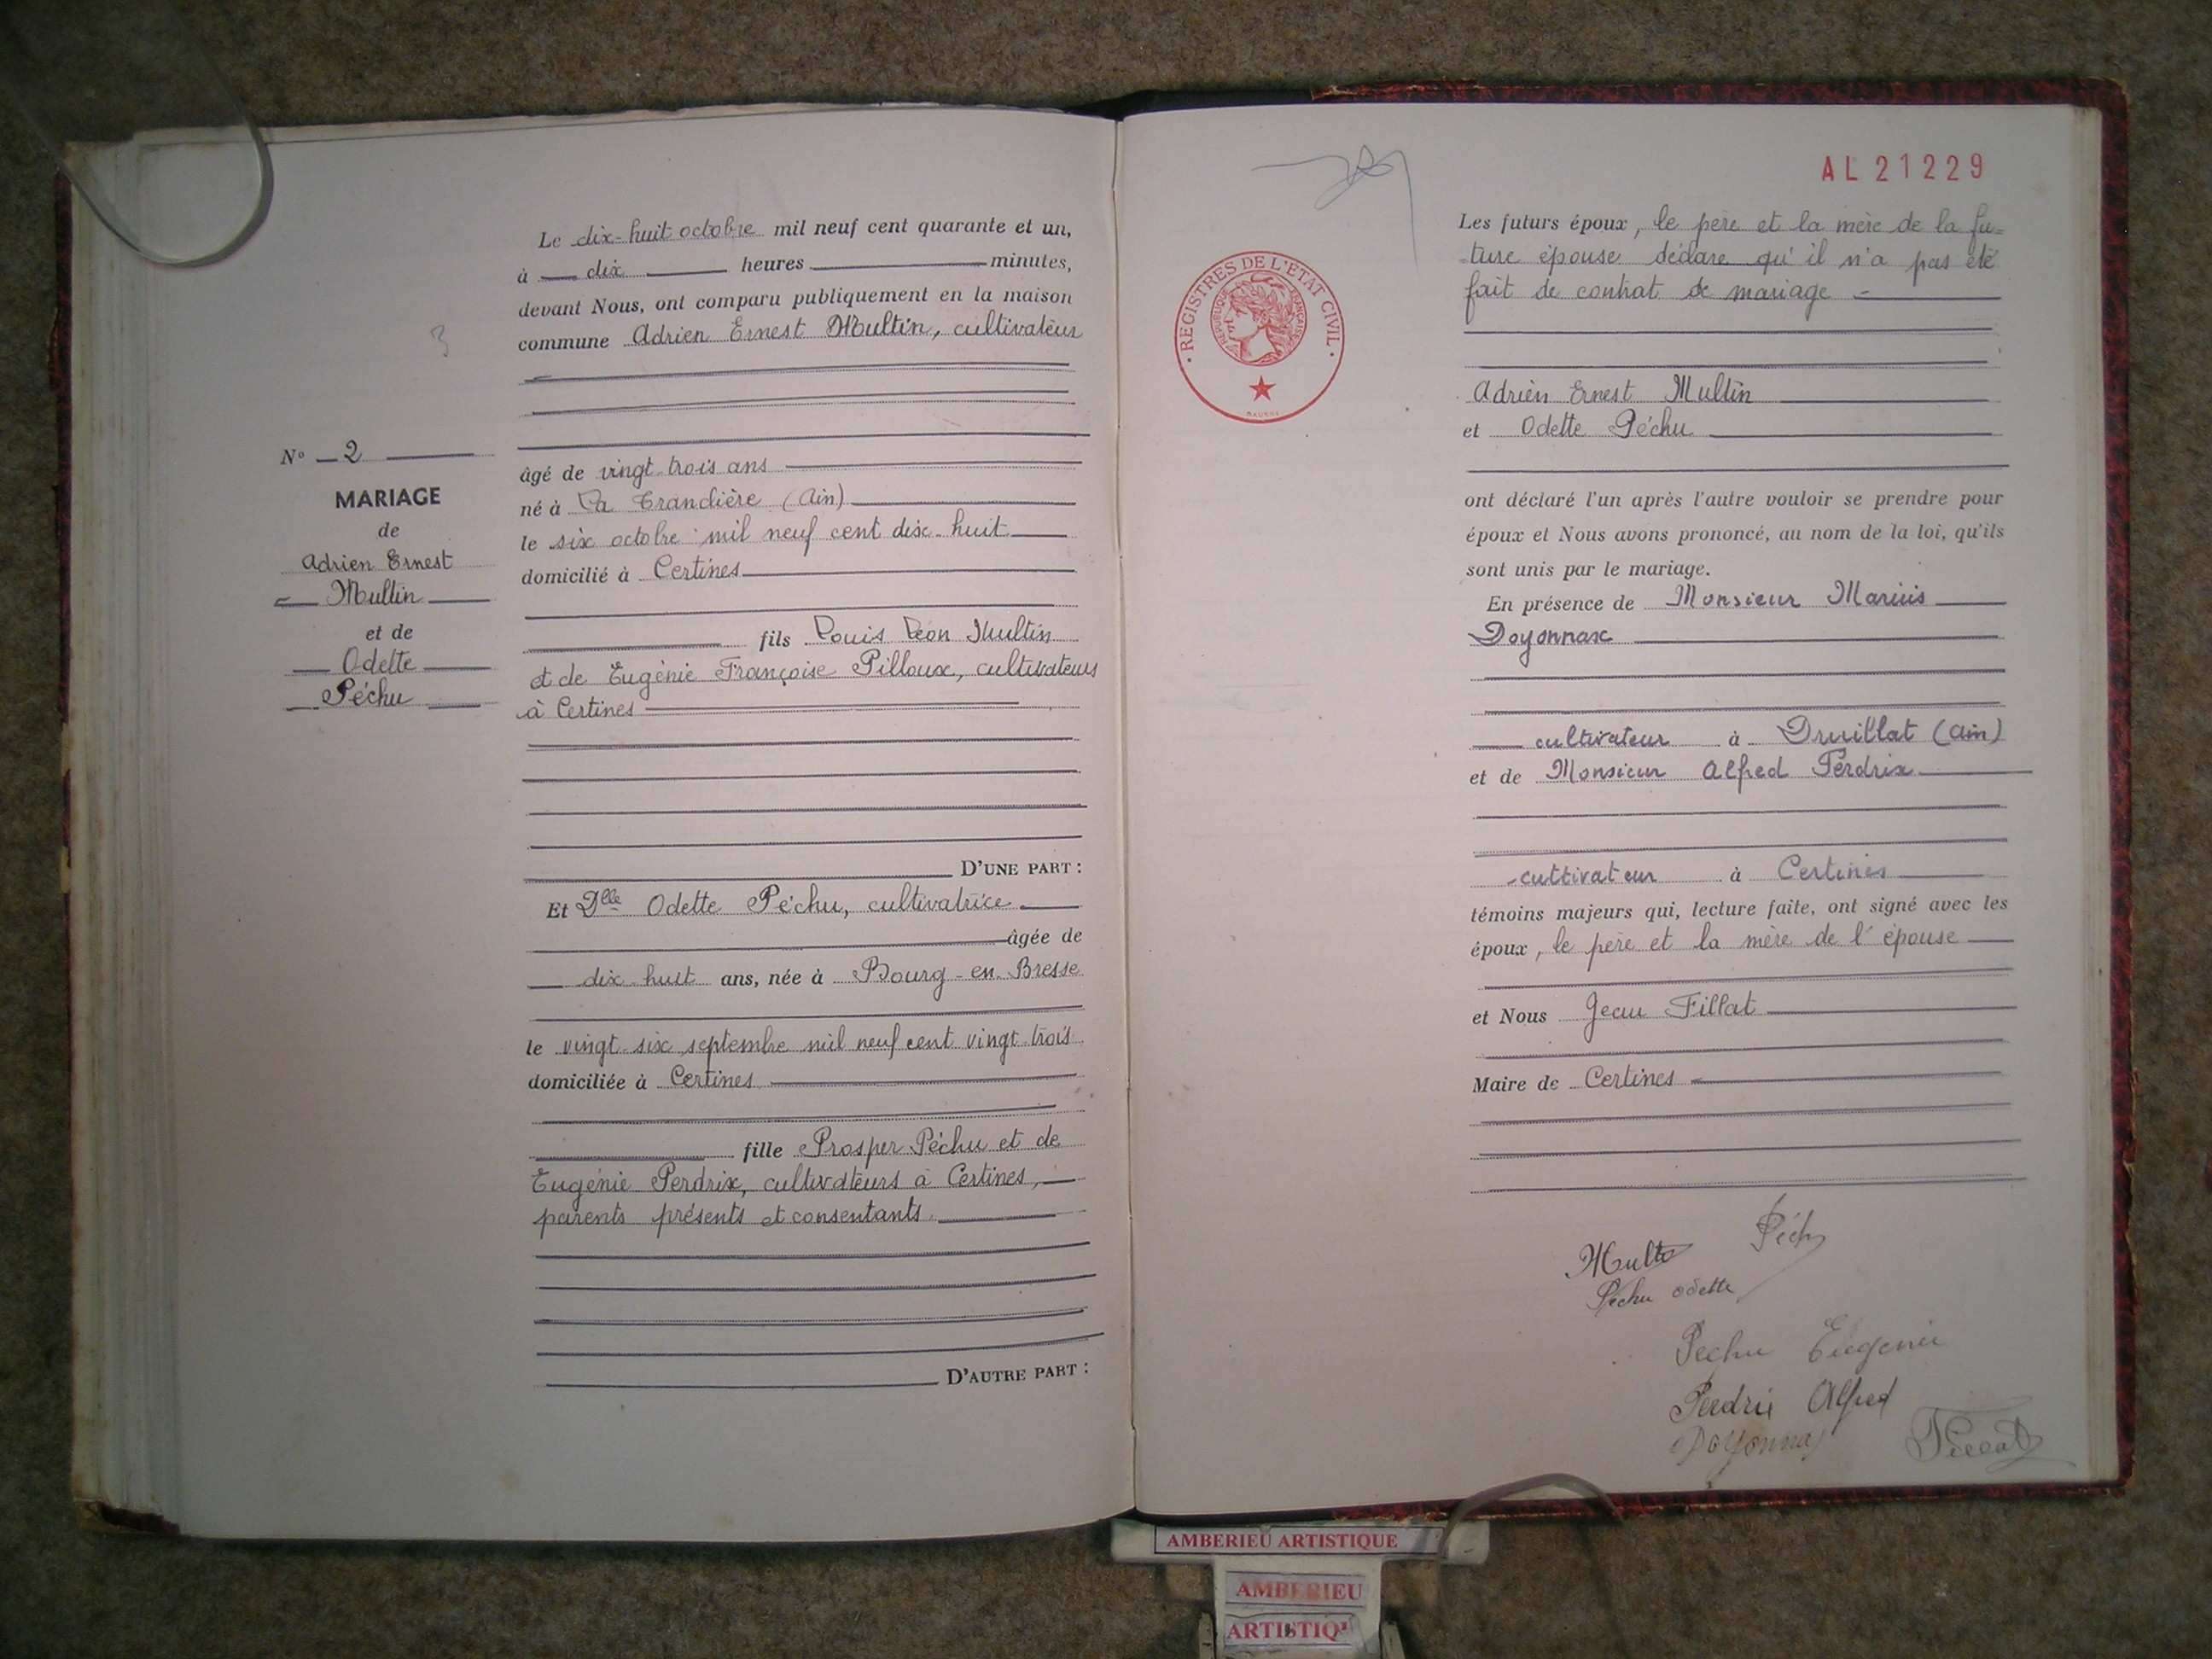 Le dix-huit octobre mil neuf cent quarante et un,
à dix heures minutes,
devant Nous, ont comparu publiquement en la maison
commune Adrien Ernest Multin, cultivateur
3
N° 2
MARIAGE
de
Adrien Ernest
Multin
et de
Odette
Péchu
âgé de vingt-trois ans
né à La Tranclière (Ain)
le six octobre mil neuf cent dix-huit
domicilié à Certines
fils Louis Léon Multin
et de Eugénie Françoise Pilloux, cultivateurs
à Certines
D'UNE PART :
Et Dlle Odette Péchu, cultivatrice
âgée de
dix-huit ans, née à Bourg-en-Bresse
le vingt-six septembre mil neuf cent vingt-trois
domiciliée à Certines
fille Prosper Péchu et de
Eugénie Perdrix, cultivateurs à Certines,
parents présents et consentants.
D'AUTRE PART :
AL 21229
REGISTRES DE L'ETAT CIVIL
REPUBLIQUE FRANÇAISE
Les futurs époux, le père et la mère de la fu-
ture épouse déclare qu'il n'a pas été
fait de contrat de mariage -
Adrien Ernest Multin
et Odette Péchu
ont déclaré l'un après l'autre vouloir se prendre pour
époux et Nous avons prononcé, au nom de la loi, qu'ils
sont unis par le mariage.
En présence de Monsieur Marius
Doyonnax
cultivateur à Druillat (Ain)
et de Monsieur Alfred Perdrix
cultivateur à Certines
témoins majeurs qui, lecture faite, ont signé avec les
époux, le père et la mère de l'épouse
et Nous Jean Fillat
Maire de Certines
Multin Péchu
Péchu Odette
Péchu Eugénie
Perdrix Alfred
Doyonnax
AMBERIEU ARTISTIQUE
AMBERIEU
ARTISTIQ